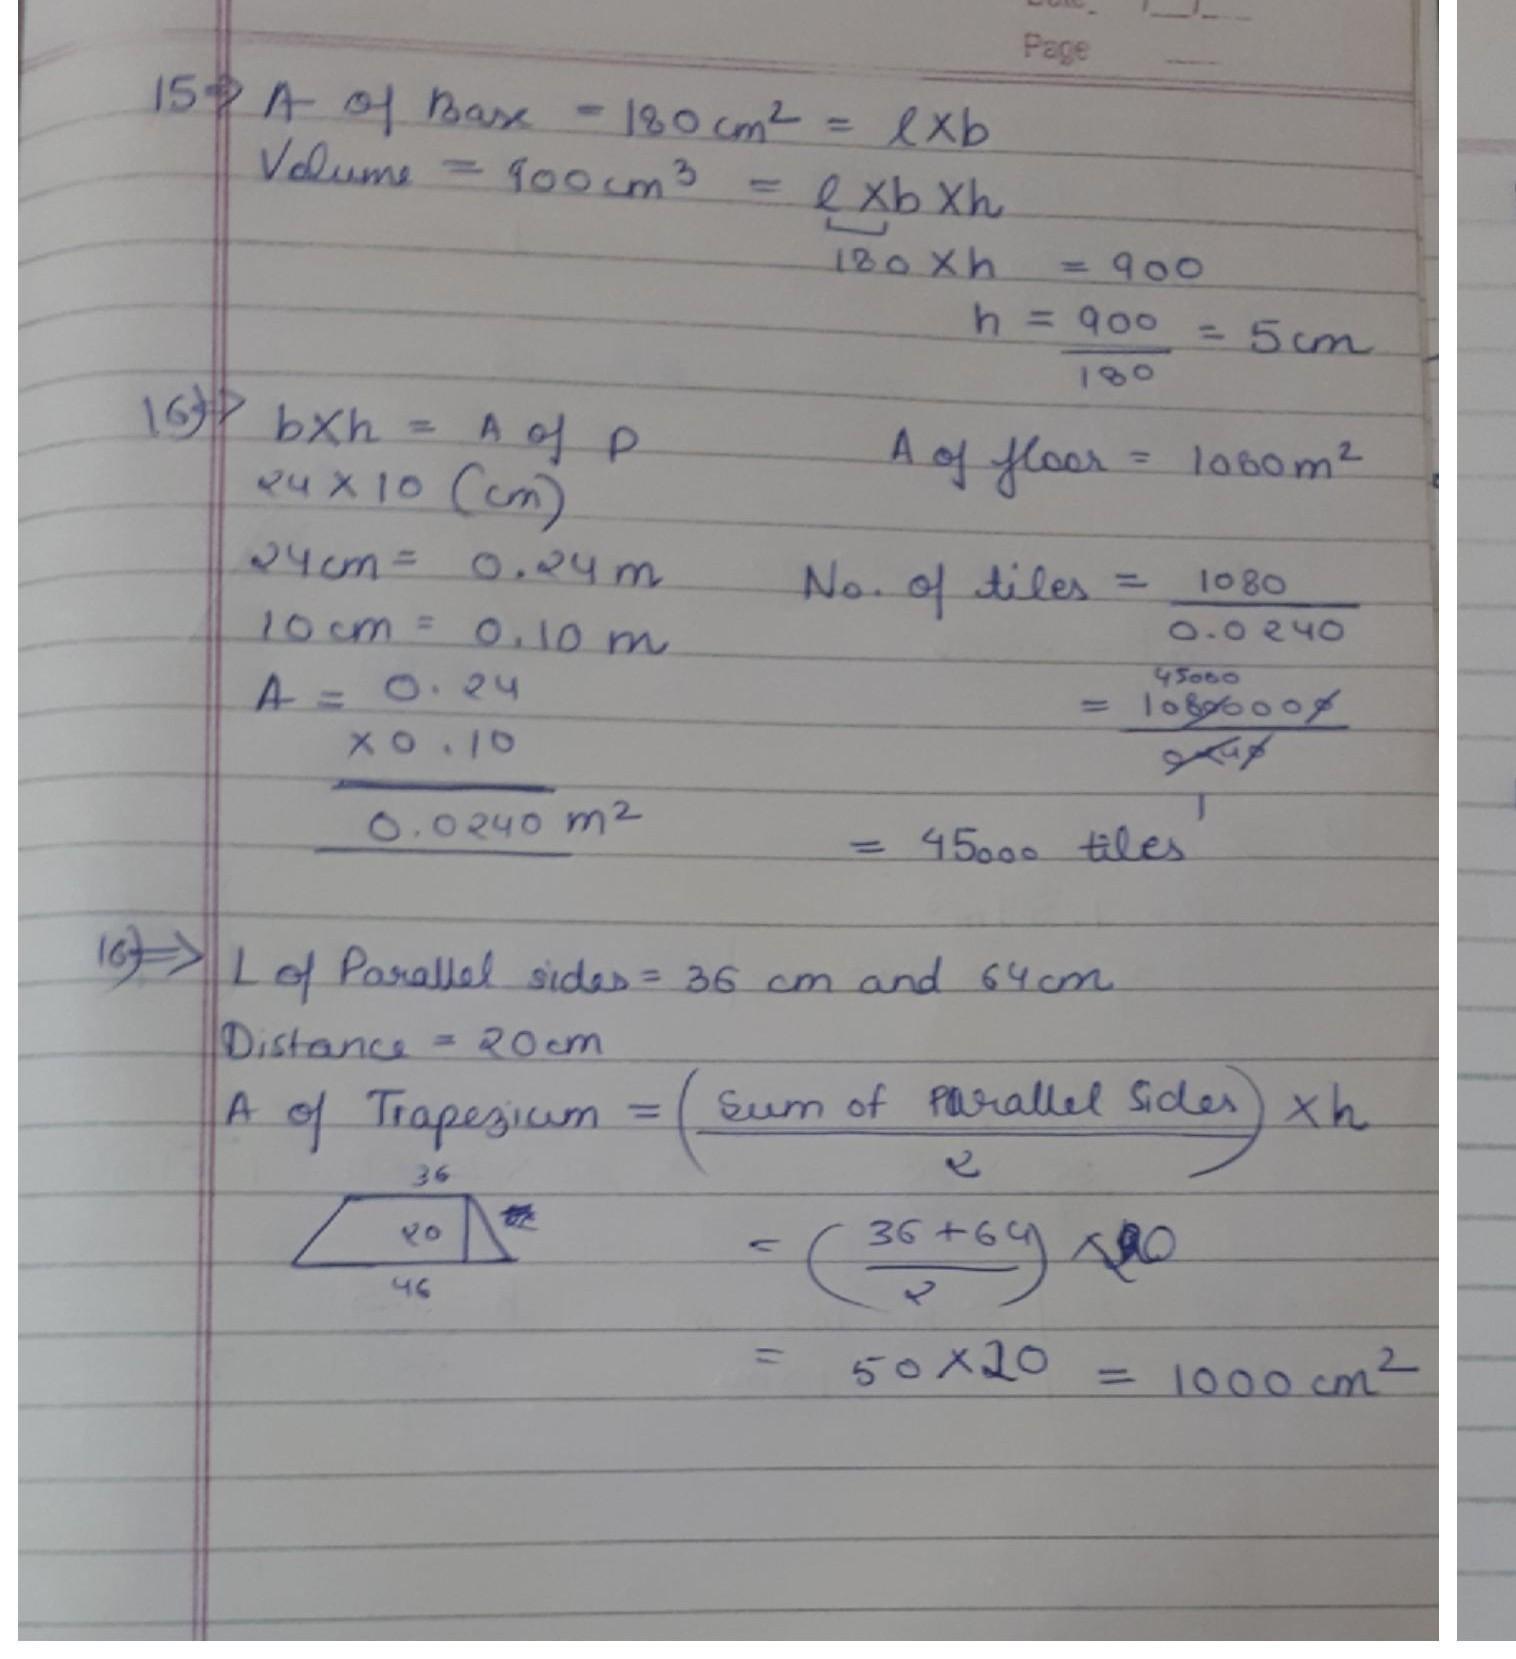 Page
15⇒ A of Base = 180cm² = l×b
Volume = 900cm³ = l×b×h
180×h = 900
h = 900/180 = 5cm
16)⇒ b×h = A of P
24×10 (cm)
24cm = 0.24m
10cm = 0.10m
A = 0.24
×0.10
0.0240 m²
A of floor = 1080m²
No. of tiles = 1080/0.0240
45000
= 10800000/240
1
= 45000 tiles
16)⇒ L of Parallel sides = 36 cm and 64cm
Distance = 20cm
A of Trapezium = (Sum of Parallel Sides/2) ×h
36
20
46
= (36+64/2) ×20
= 50×20 = 1000cm²